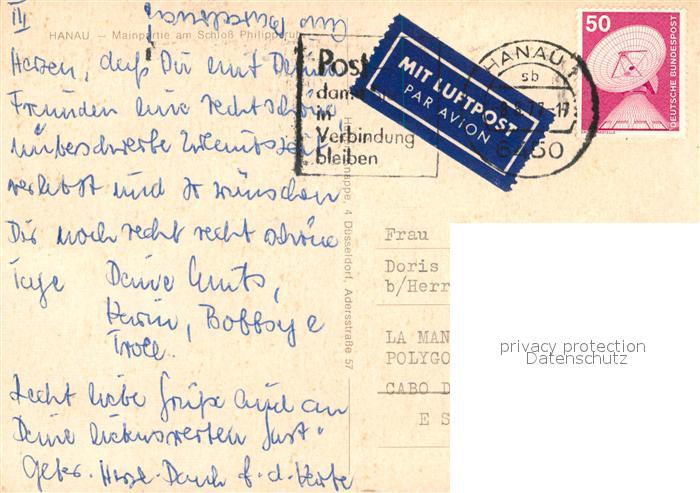 III
HANAU — Mainpartie am Schloß Philippsruh
Herzen, daß Du mit Deinen
Freunden eine recht schöne
unbeschwerte Urlaubszeit
verlebst und wir wünschen
Dir noch recht recht schöne
Tage Deine
Karin, Bobbsy &
Troll.
Recht liebe Grüße auch an
Deine liebenswerten Gast-
geber. Herzl. Dank f. d. Karte
Post
damit
in
Verbindung
bleiben
MIT LUFTPOST
PAR AVION
HANAU 1
sb
6450
50
DEUTSCHE BUNDESPOST
4 Düsseldorf, Adersstraße 57
Frau
Doris
b/Herr
LA MAN
POLYGO
CABO D
E S
privacy protection
Datenschutz